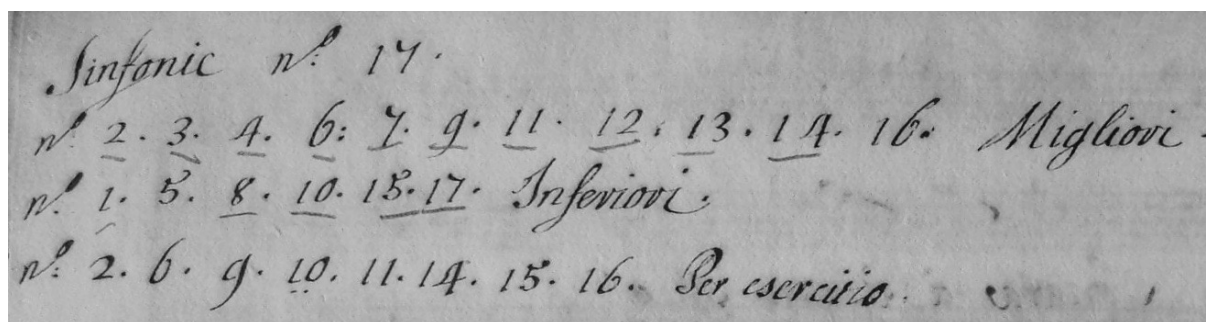 Sinfonie nº. 17.
nº. 2. 3. 4. 6: 7. 9. 11. 12. 13. 14. 16. Migliori.
nº. 1. 5. 8. 10. 15. 17. Inferiori.
nº. 2. 6. 9. 10. 11. 14. 15. 16. Per esercitio.